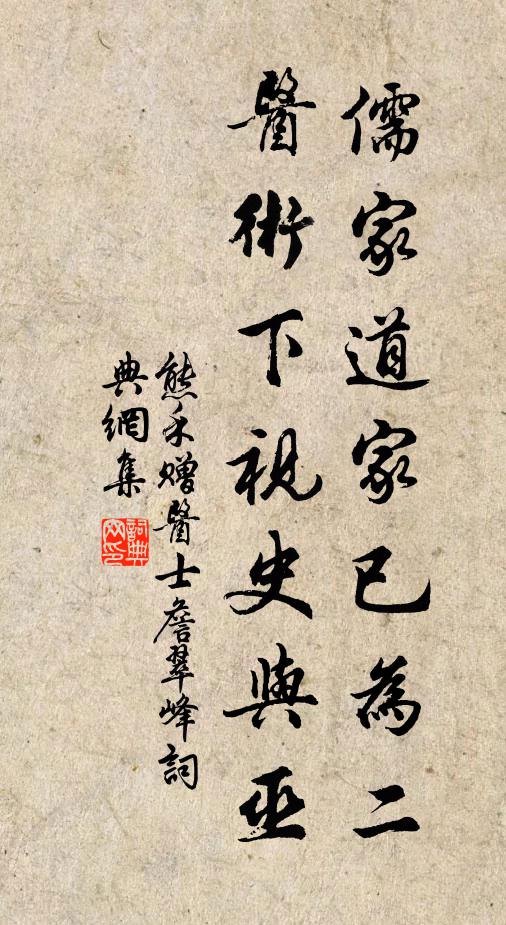 儒家道家已為二
醫術下視史與巫
熊禾贈醫士詹翠峰詞
典網集
詞典
网印